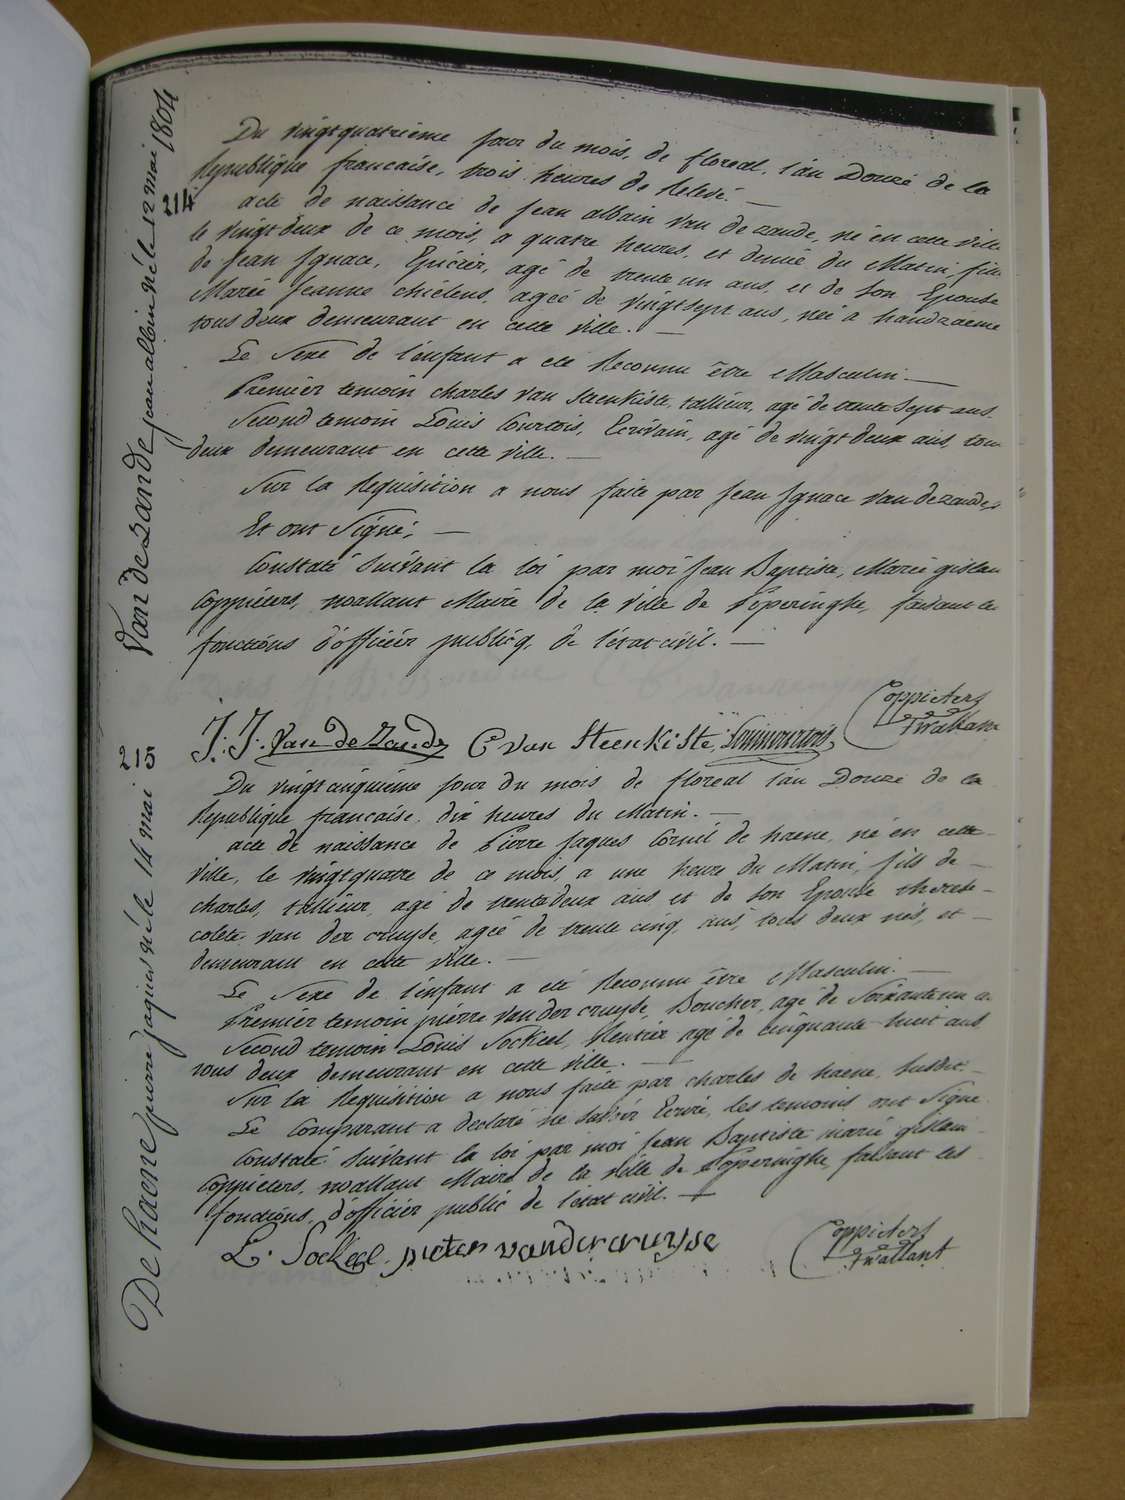 Van de Zande jean albin né le 12 mai 1804
214
Du vingtquatrième jour du mois, de floreal, l'an Douze de la
Republique francaise, trois heures de Relevé. —
acte de naissance de Jean albain van de zande, né en cette ville
le vingtdeux de ce mois, a quatre heures, et demie du Matin, fils
de Jean Ignace, Epicier, agé de trente un ans, et de son Epouse
Marie Jeanne chielens, agée de vingtsept ans, née a handzaeme
tous deux demeurant en cette ville. —
Le Sexe de l'enfant a eté Reconnu être Masculin —
Premier temoin charles van Steenkiste, tallieur, agé de trente sept ans.
Second temoin Louis Courtois, Ecrivain, agé de vingt deux ans, tous
deux demeurant en cette ville. —
Sur la Requisition a nous faite par Jean Ignace van de zande,
Et ont Signé; —
Constaté Suivant la loi par moi Jean Baptiste, Marie gislain
Coppieters, wallant Maire de la ville de Poperinghe, faisant les
fonctions d'officier publicq, de l'état civil. —
J: J: Van de Zande C van Steenkiste, Louis Courtois,
Coppieters
twallant
215
De haene pierre jaques né le 14 mai
Du vingt cinquième jour du mois de floreal l'an Douze de la
Republique francaise, dix heures du Matin. —
acte de naissance de Pierre Jaques Cornil de haene, né en cette
ville, le vingtquatre de ce mois, a une heure du Matin, fils de —
charles, tallieur, agé de trentedeux ans, et de son Epouse therese —
colete van der cruyse, agée de trente cinq, ans, tous deux nés, et —
demeurant en cette ville. —
Le Sexe de l'enfant a eté Reconnu être Masculin. —
Premier temoin pierre van der cruyse, Boucher, agé de Soixante un a
Second temoin Louis Sockeel, Rentier agé de cinquante huit ans
tous deux demeurant en cette ville. —
Sur la Requisition a nous faite par charles de haene, Susdit. —
Le Comparant a declaré ne savoir Ecrire, les temoins ont Signé
Constaté Suivant la loi par moi Jean Baptiste marie gislain
Coppieters, wallant Maire de la ville de Poperinghe, faisant les
fonctions, d'officier public de l'état civil. —
L. Sockeel pieter vandercruysse
Coppieters
twallant